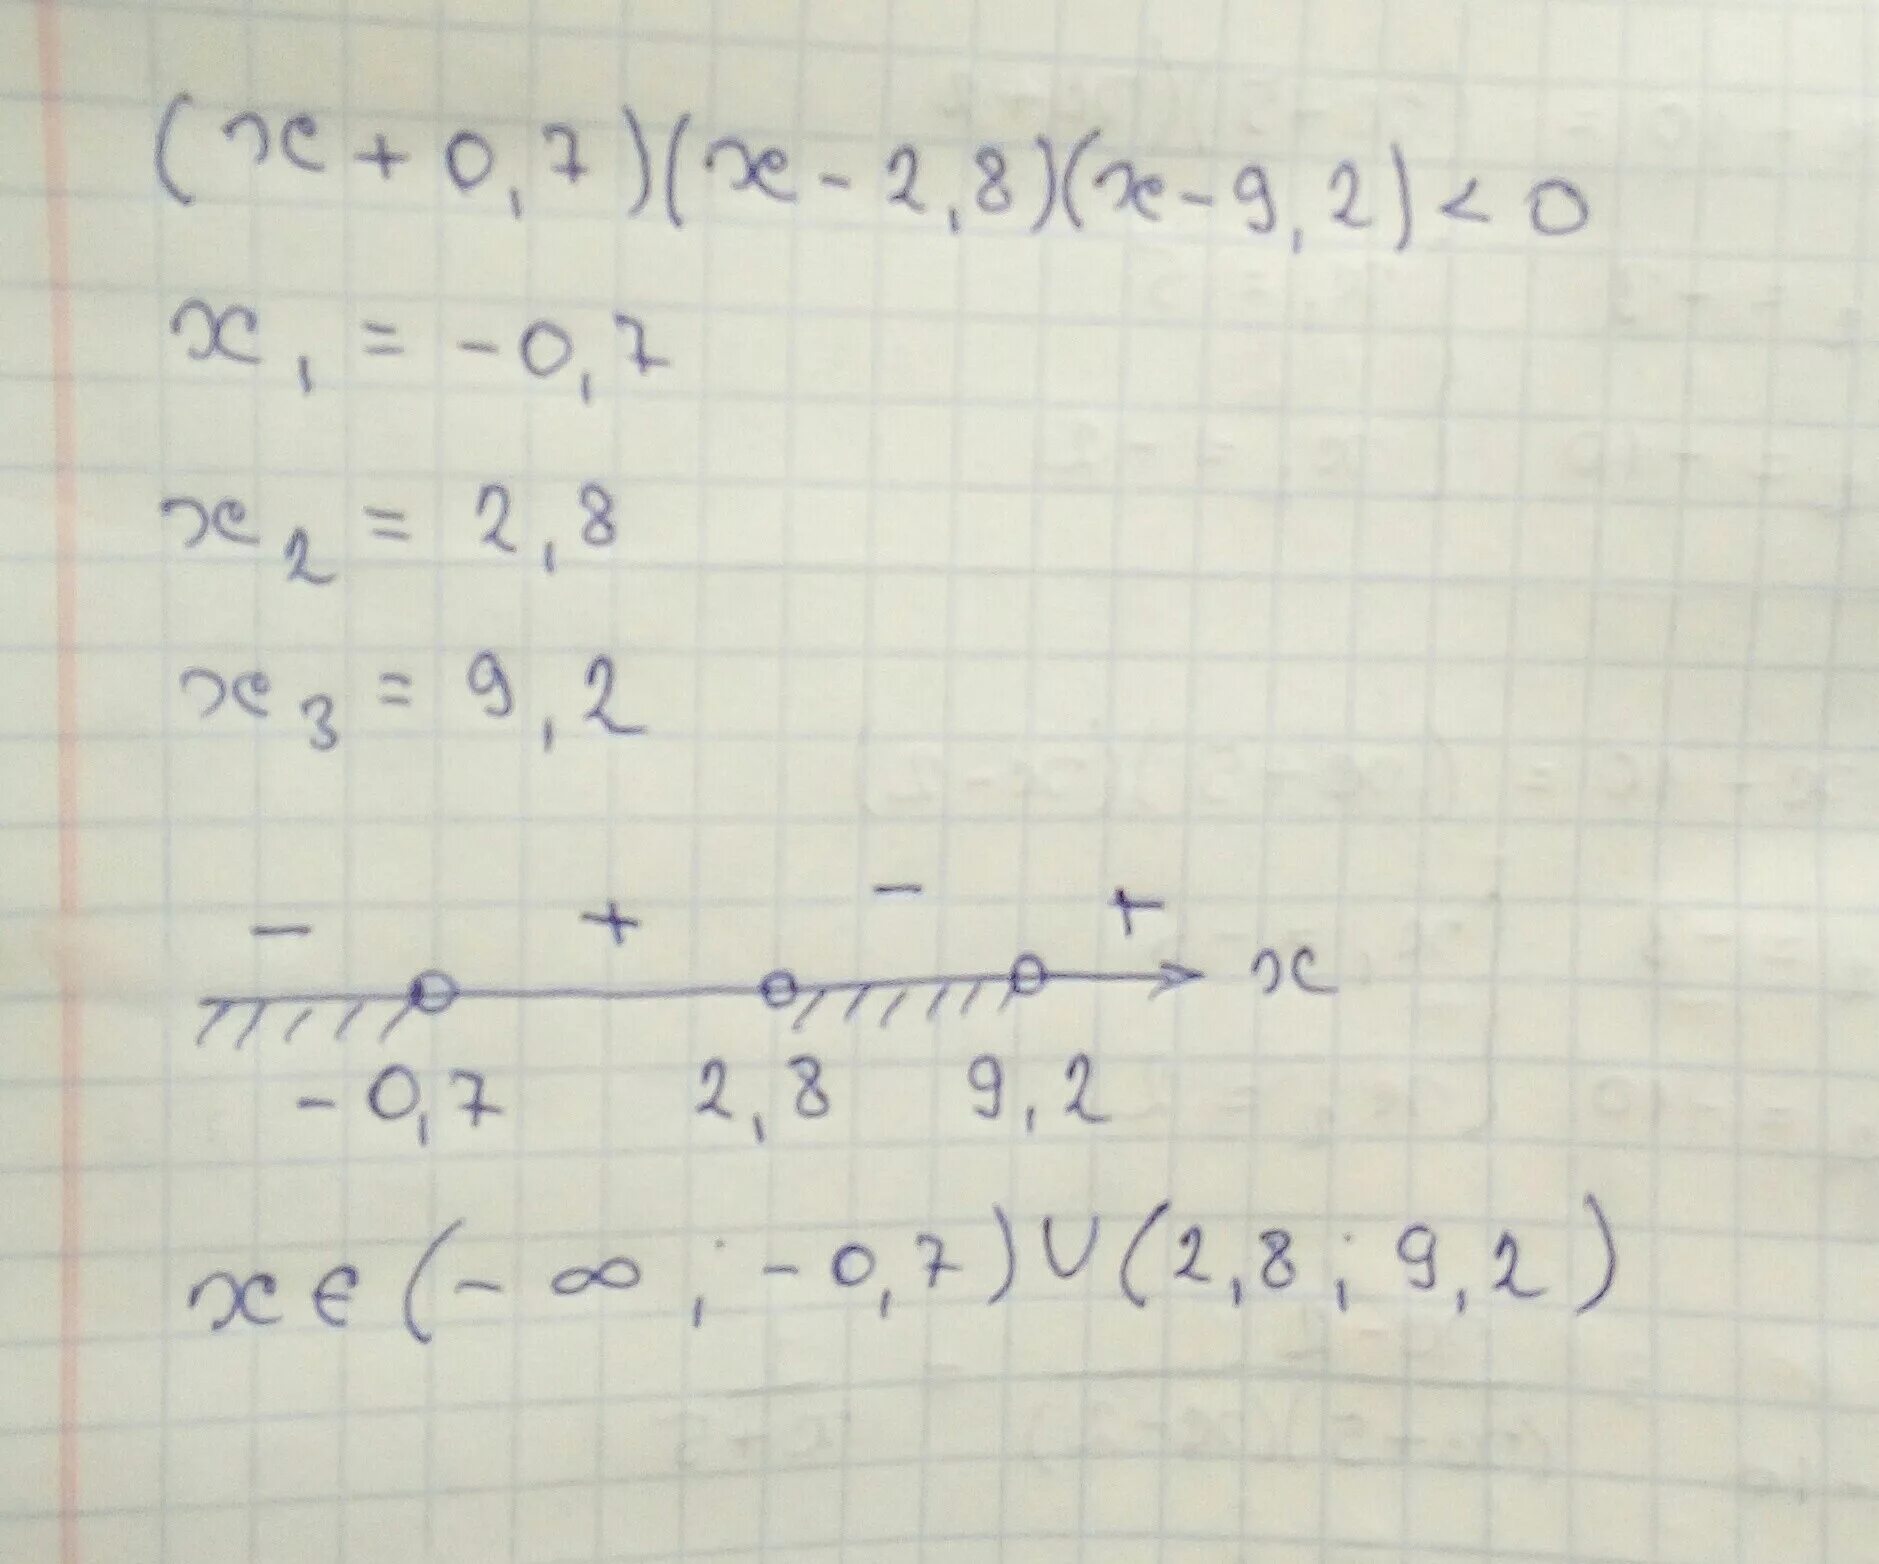 (x + 0,7)(x - 2,8)(x - 9,2) < 0
x₁ = -0,7
x₂ = 2,8
x₃ = 9,2
- + - +
x
-0,7 2,8 9,2
x ∈ (-∞; -0,7) ∪ (2,8; 9,2)